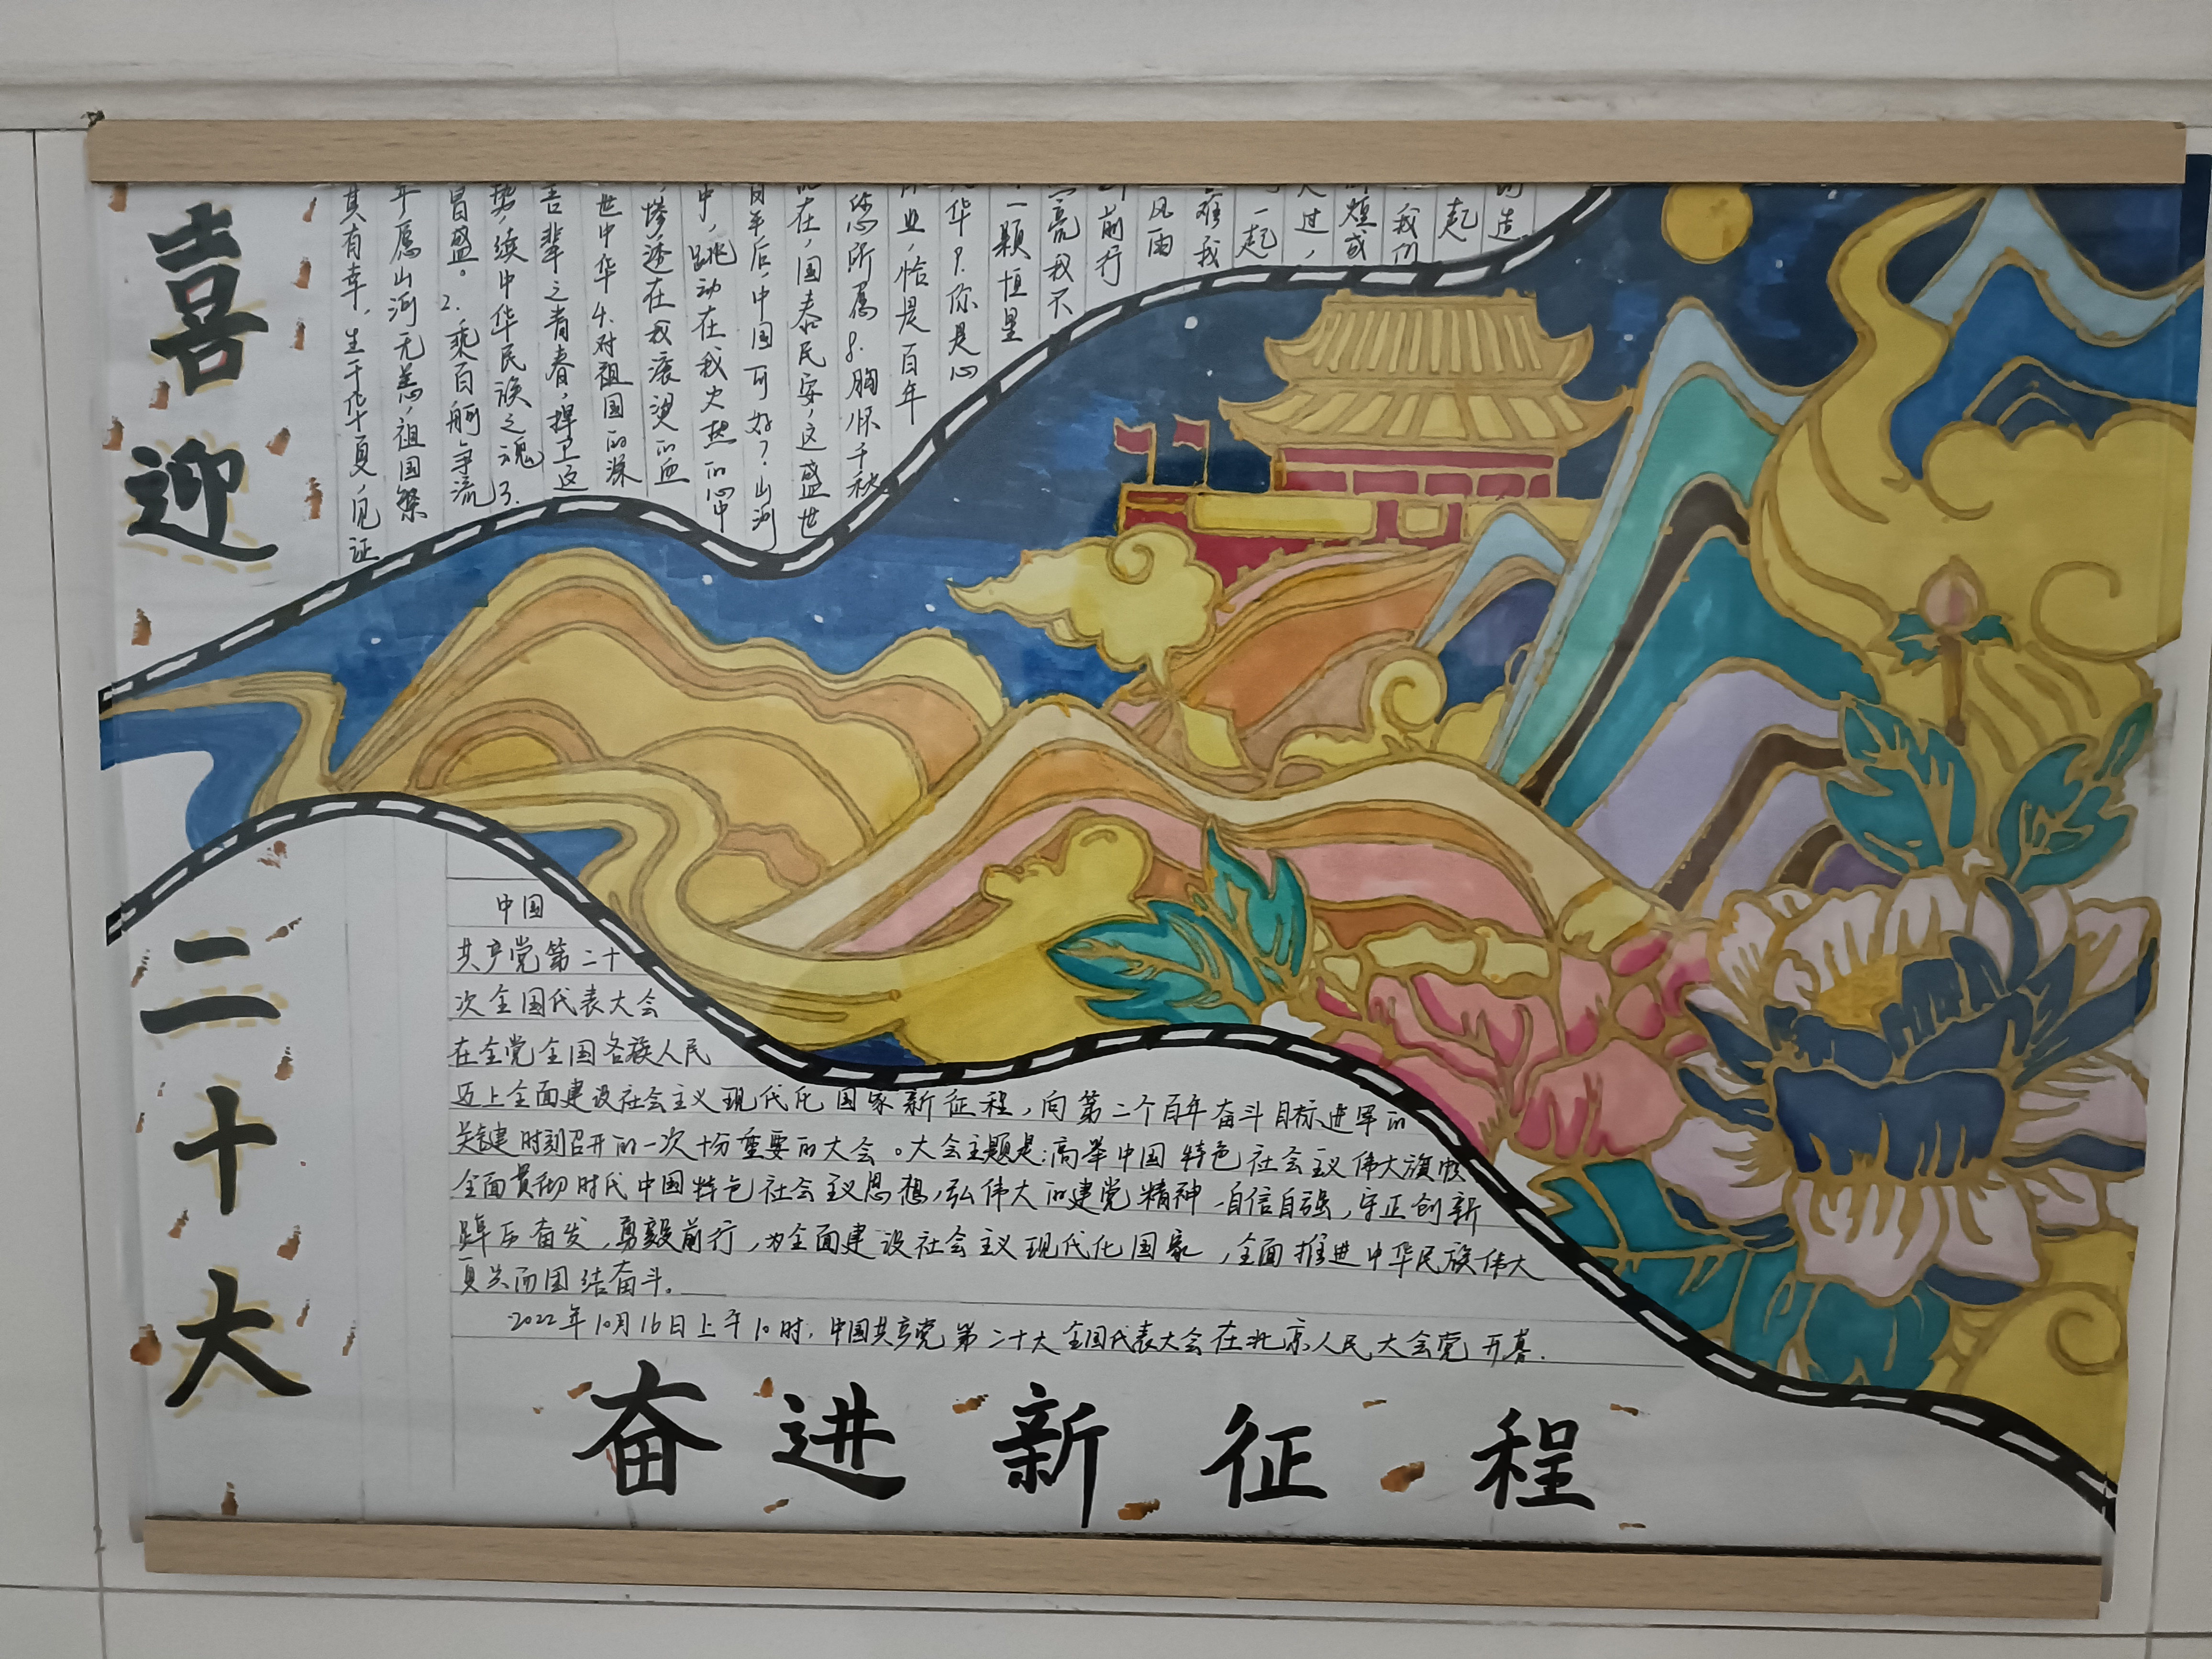 喜迎
二十大
其有幸，生于华夏，见证
年愿山河无恙，祖国繁
昌盛。2.乘百舸争流
势，续中华民族之魂3.
吾辈之青春，捍卫这
世中华4.对祖国的深
，惨透在我滚烫的血
中，跳动在我火热的心中
百年后，中国可好？山河
在，国泰民安，这盛世
您所愿8.胸怀千秋
业，恰是百年
华9.你是心
一颗恒星
亮我不
前行
风雨
我
一起
过，
煌或
我们
起
中国
共产党第二十
次全国代表大会
在全党全国各族人民
迈上全面建设社会主义现代化国家新征程，向第二个百年奋斗目标进军的
关键时刻召开的一次十分重要的大会。大会主题是：高举中国特色社会主义伟大旗帜
全面贯彻时代中国特色社会主义思想，弘伟大的建党精神，自信自强，守正创新
踔厉奋发，勇毅前行，为全面建设社会主义现代化国家，全面推进中华民族伟大
复兴而团结奋斗。
2022年10月16日上午10时，中国共产党第二十大全国代表大会在北京人民大会党开幕.
奋进新征程